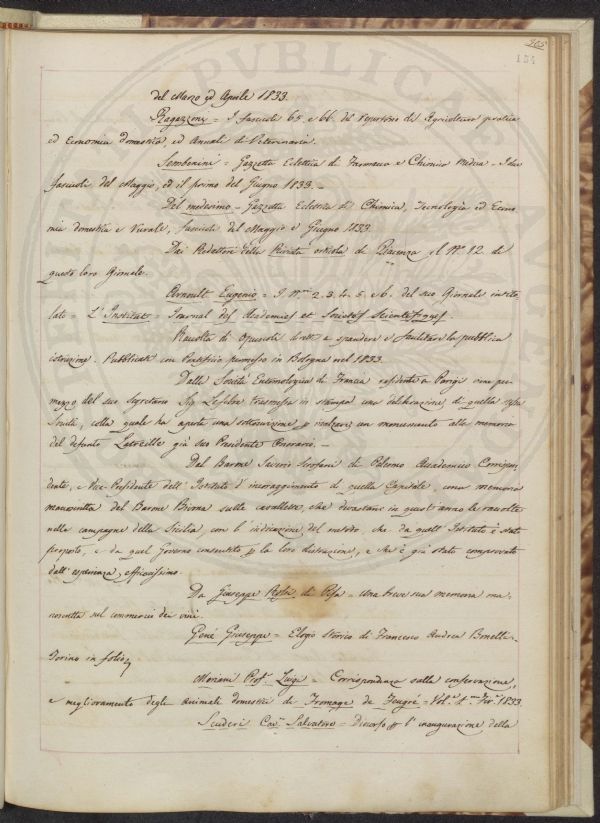 365
154
del Marzo ed Aprile 1833.
Ragazzoni = I fascicoli 65. e 66. del repertorio di Agricoltura pratica
ed Economia domestica, ed Annali di Veterinaria.
Sembenini = Gazzetta Eclettica di Farmacia e Chimica Medica - I due
fascicoli del Maggio, ed il primo del Giugno 1833. -
Del medesimo - Gazzetta Eclettica di Chimica, Tecnologia ed Econo-
mia domestica e Rurale, fascicoli del Maggio e Giugno 1833.
Dai Redattori della Rivista orticola di Piacenza il N.º 12. di
questo loro Giornale.
Arnoult Eugenio = I N.ri 2. 3. 4. 5. e 6. del suo Giornale intito-
lato = L'Institut = Journal des Academies et Societés Scientifiques.
Raccolta di opuscoli diretti a spandere e facilitare la pubblica
istruzione. Pubblicati con Pontificio permesso in Bologna nel 1833.
Dalla Società Entomologica di Francia residente a Parigi viene per
mezzo del suo Segretario Sig. Lefebre trasmessa in stampa una deliberazione di quella stessa
Società, colla quale ha aperta una sottoscrizione p innalzare un monumento alla memoria
del defunto Latreille già suo Presidente Onorario. -
Dal Barone Saverio Scrofani di Palermo Accademico Corrispon-
dente, e Vice-Presidente dell'Istituto d'incoraggimento di quella Capitale, una memoria
manoscritta del Barone Bivona sulle cavallette, che devastano in quest'anno le raccolte
nelle campagne della Sicilia, con l'indicazione del metodo, che da quell'Istituto è stato
proposto, e da quel Governo consentito p la loro distruzione, e che è già stato comprovato
dall'esperienza efficacissimo.
Da Giuseppe di Pisa = Una breve sua memoria ma-
noscritta sul commercio dei vini.
Gené Giuseppe = Elogio Storico di Francesco Andrea Bonelli.
Torino in foglio
Moriani Prof.e Luigi = Corrispondenza sulla conservazione,
e miglioramento degli animali domestici di Fromage de Feugré = Vol.e 1.mo 1833.
Scuderi Cav.e Salvatore = Discorso p l'inaugurazione della